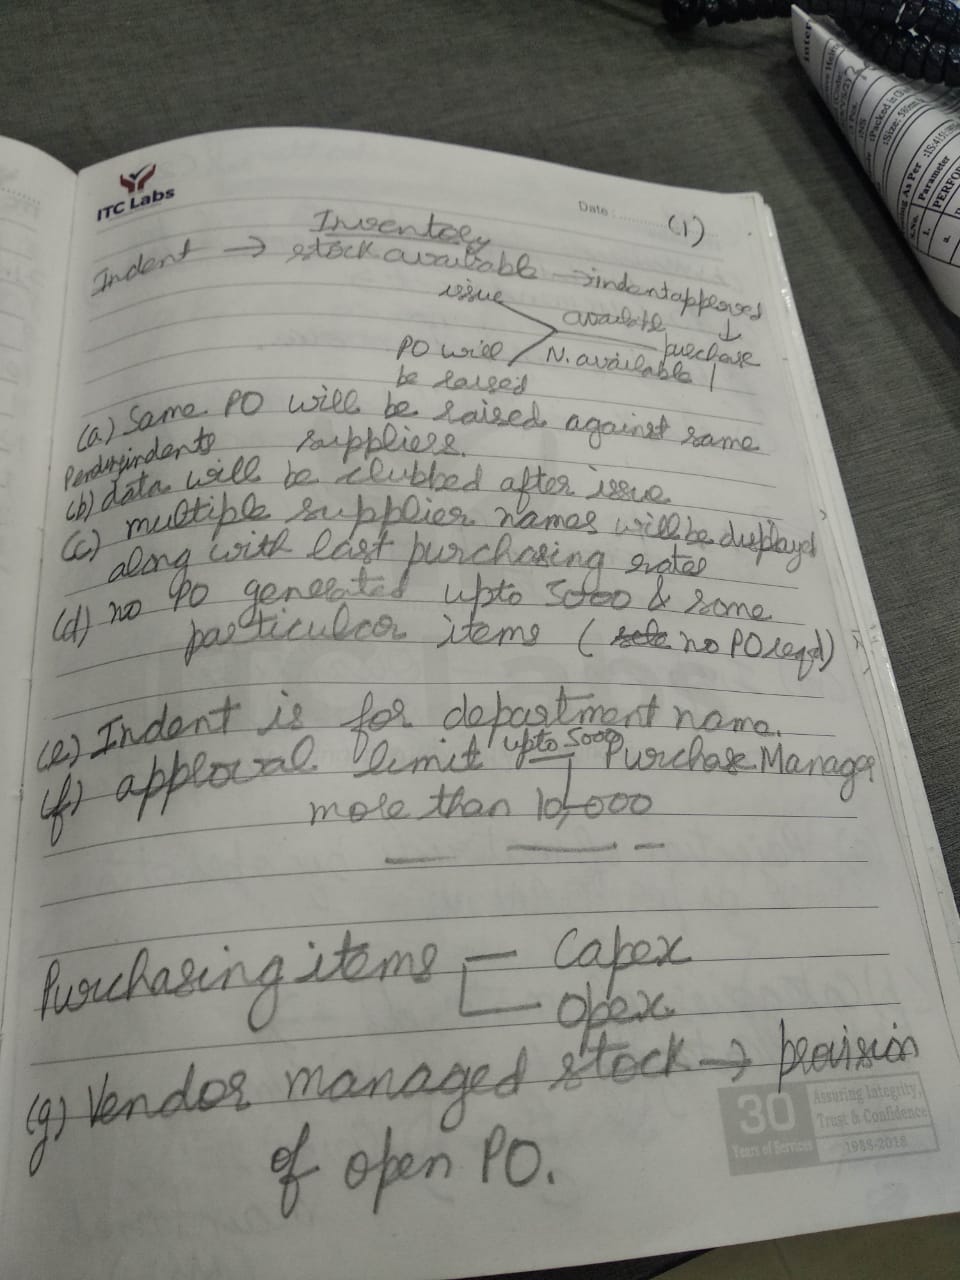 ITC Labs
Date : (1)
Inventory
Indent → stock available → indent approved
issue
available
↓
purchase
PO will N. available
be raised
(a.) Same PO will be raised against same
suppliers.
(b) data will be clubbed after issue
(c) multiple supplier names will be displayd
along with last purchasing rates
(d) no PO generated upto 5000 & some
particular items ( no PO reqd)
(e) Indent is for department name.
(f) approval limit upto 5000 Purchase Manager
more than 10,000
Purchasing items — Capex
Opex
(g) Vendor managed stock → provision
of open PO.
30 Years of Service
Assuring Integrity,
Trust & Confidence
1988-2018
Parameter
1.
2.